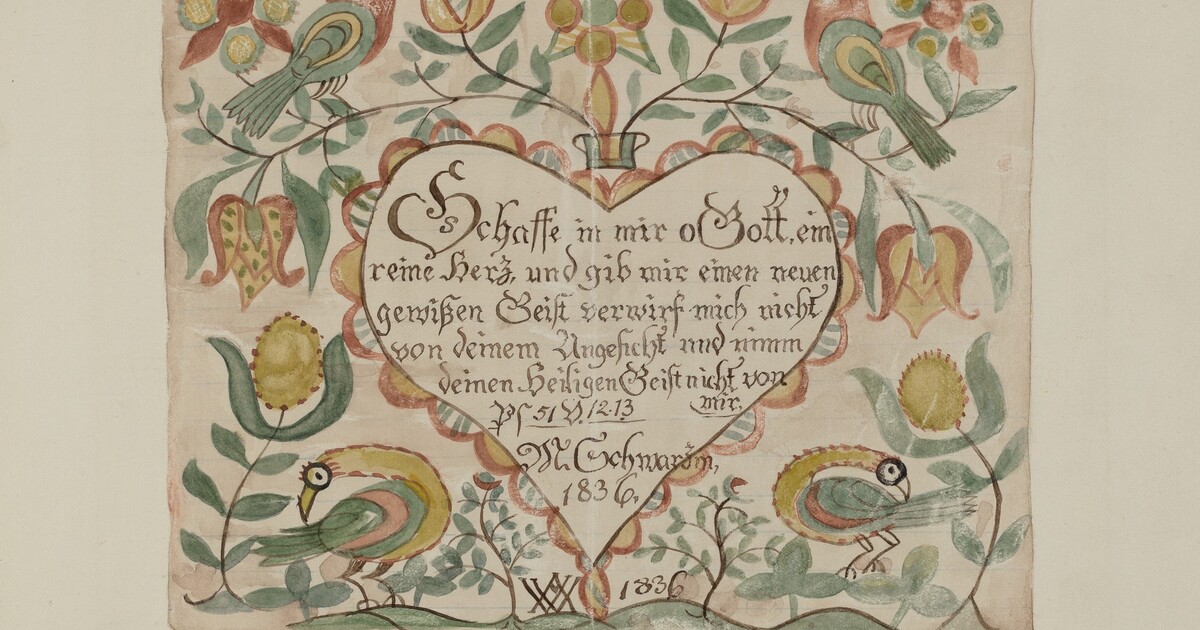 Schaffe in mir o Gott, ein
reine Herz, und gib mir einen neuen
gewißen Geist verwirf mich nicht
von deinem Angesicht und nimm
deinen Heiligen Geist nicht von
mir.
Ps 51 V. 12.13
1836.
1836